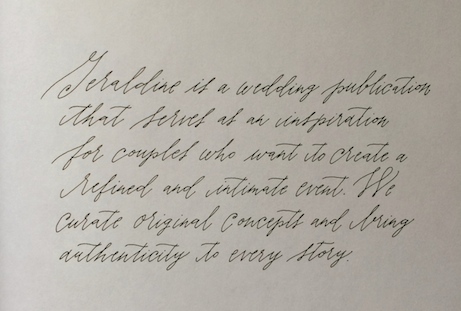 Geraldine is a wedding publication
that serves as an inspiration
for couples who want to create a
refined and intimate event. We
curate original concepts and bring
authenticity to every story.